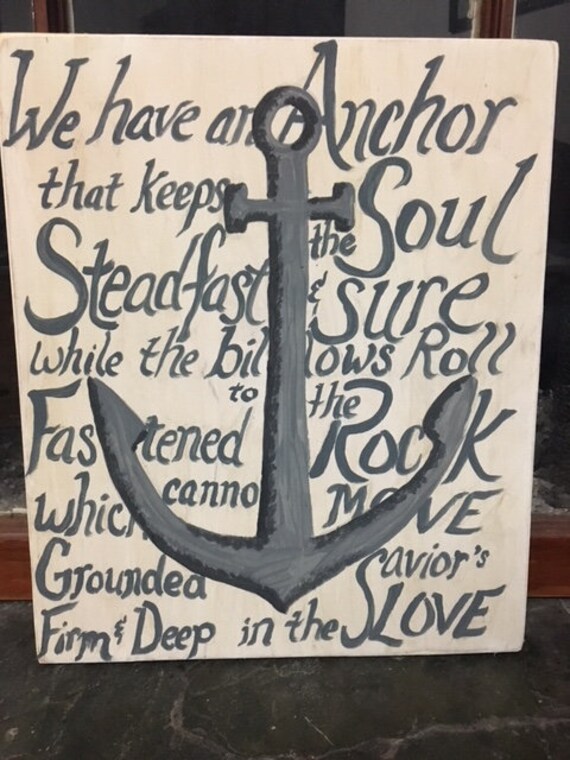 We have an Anchor
that keeps the Soul
Steadfast & sure
while the billows Roll
Fastened to the Rock
which cannot MOVE
Grounded
Firm & Deep in the Savior's LOVE